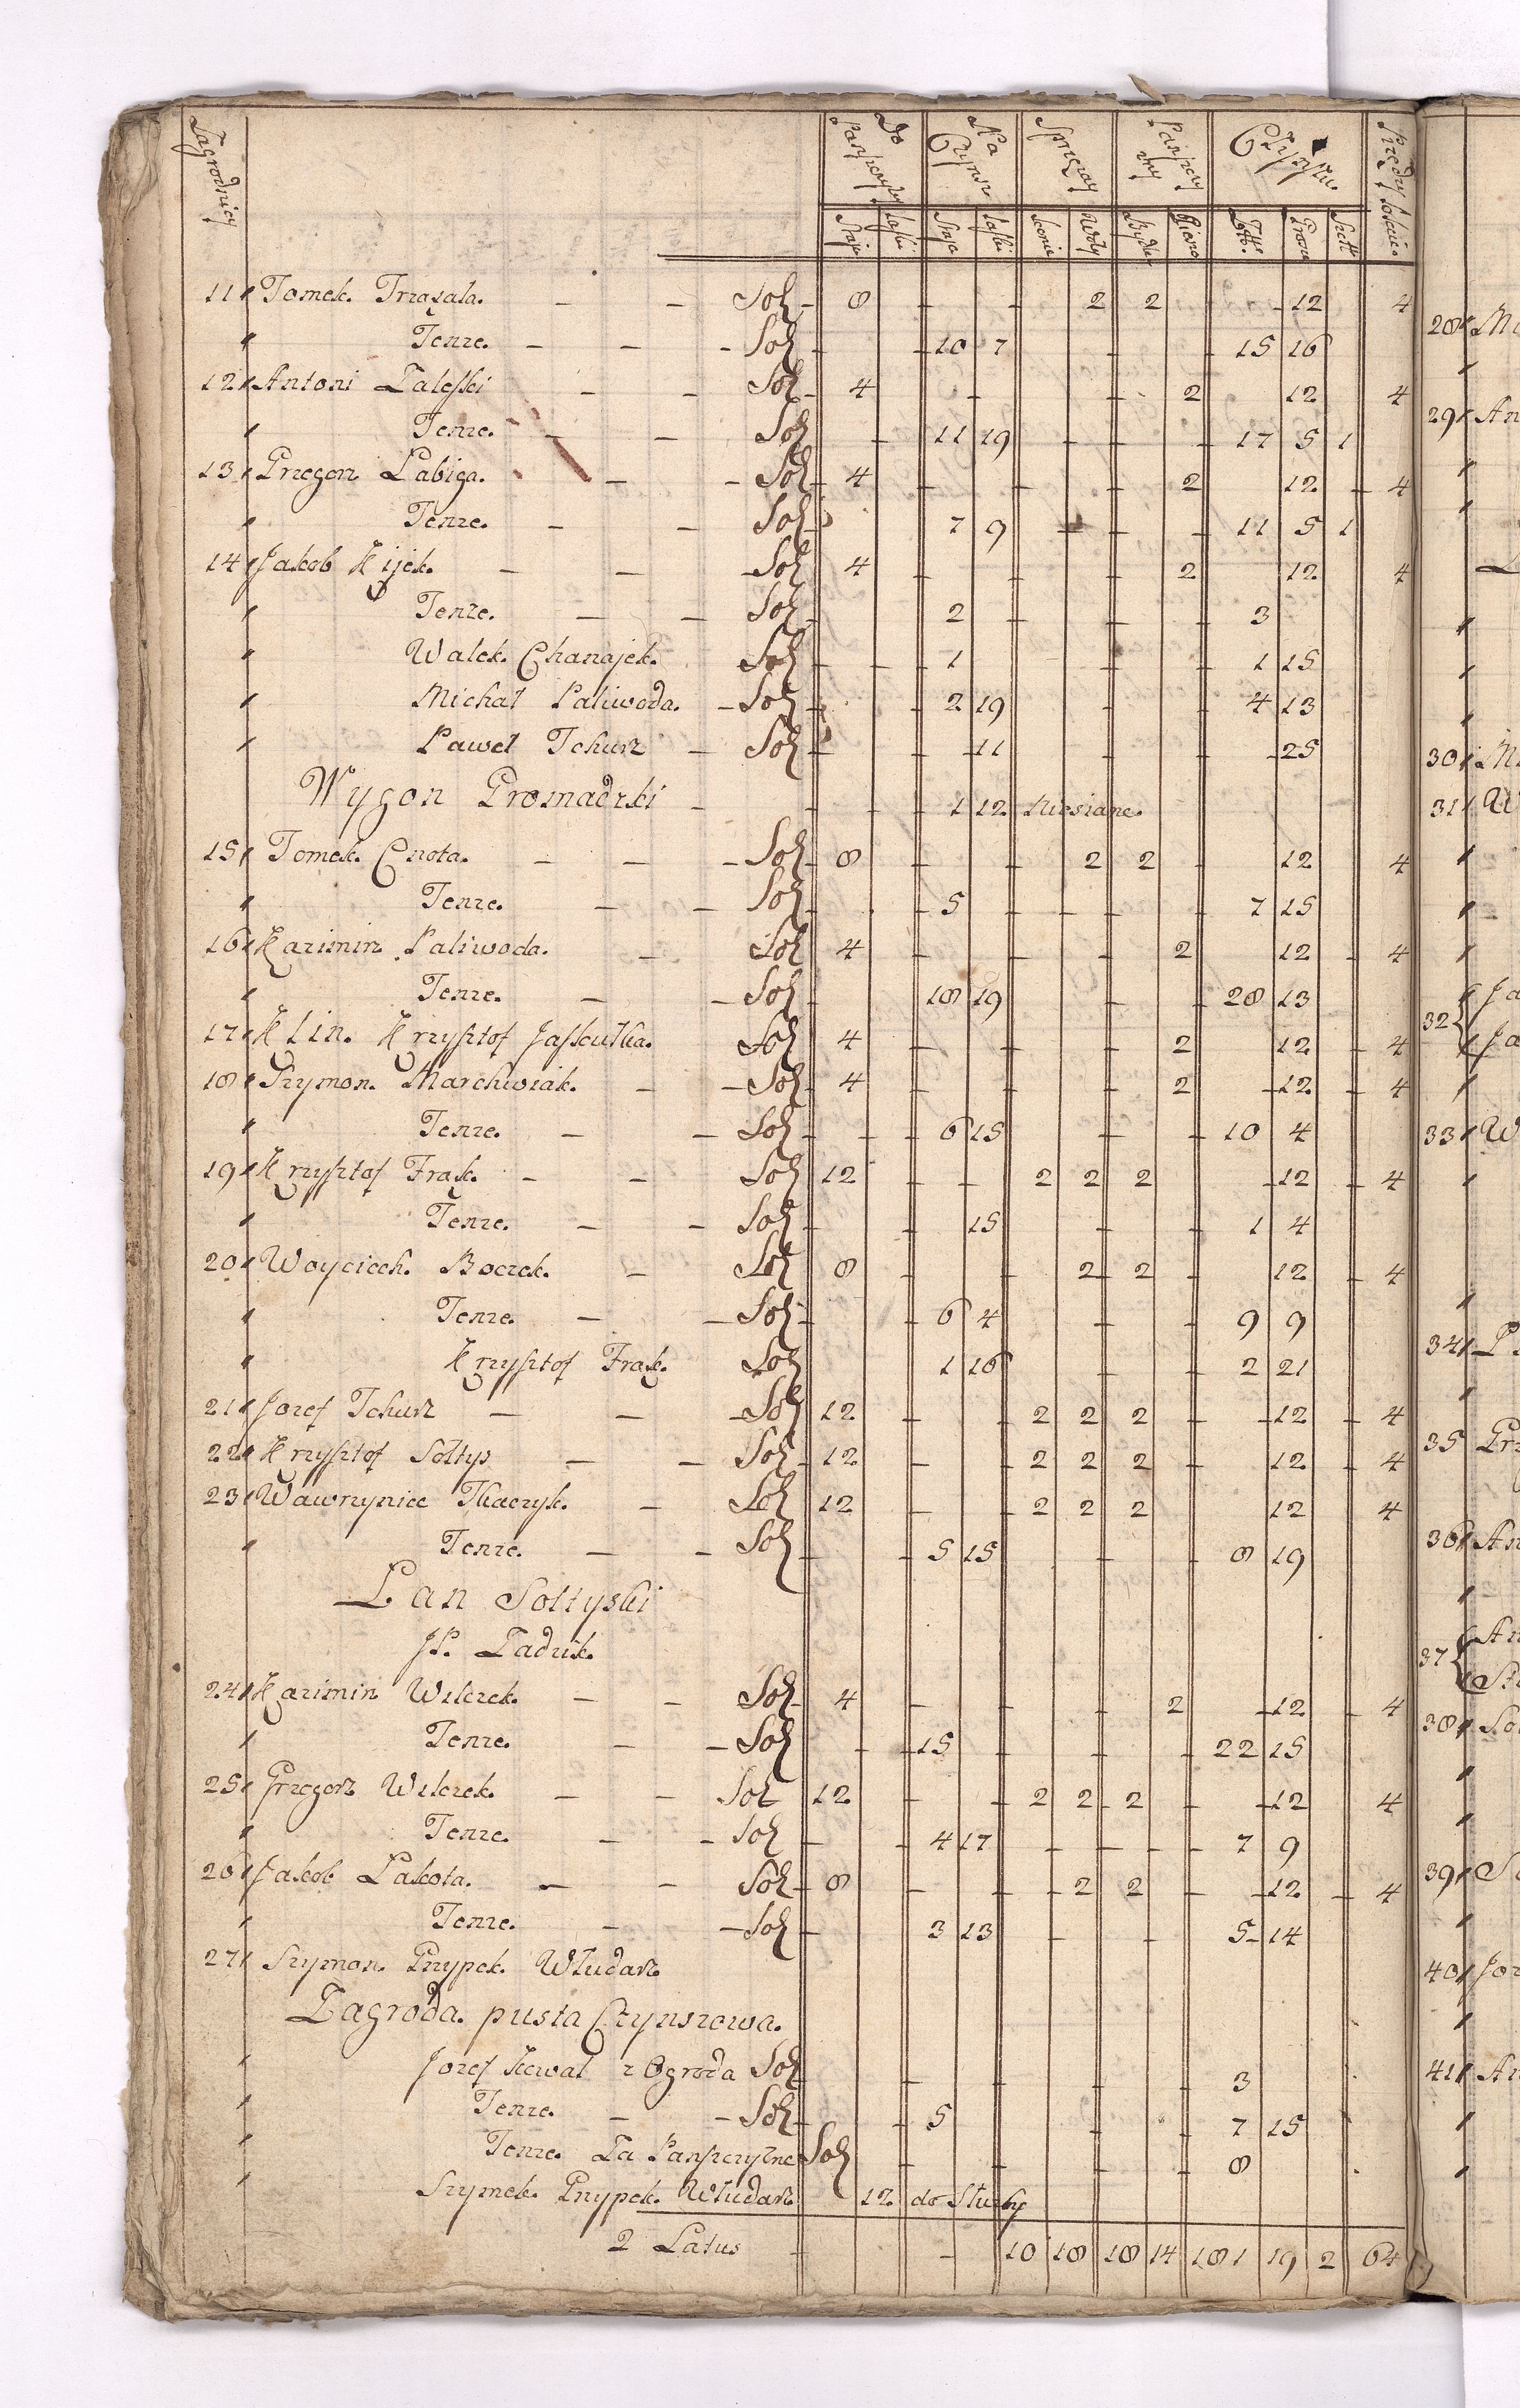 Zagrodnicy
Do Panszczyzny Na Czynsz Sprzezay Czynszu
Staje Laski Staje Laski Konie Woły Bydłem Pieszo Złłte Grosze Szell
11 Tomek Trząsała. — — Soł 8 2 2 12 4
Tenze. — — Soł 10 7 15 16
12 Antoni Zaleski — — Soł 4 2 12 4
Tenze. — — Soł 11 19 17 5 1
13 Grzegorz Labiga. — — Soł 4 2 12 4
Tenze. — — Soł 7 9 11 5 1
14 Jakob Kijek. — — Soł 4 2 12 4
Tenze. — — Soł 2 3
Walek Chanajek. Soł 1 1 15
Michał Paliwoda. — Soł 2 19 4 13
Paweł Tchurz — Soł 11 25
Wygon Gromadzki — 1 12 niesiane.
15 Tomek Cnota. — — Soł 8 2 2 12 4
Tenze. — — Soł 5 7 15
16 Kazimirz Paliwoda. — Soł 4 2 12 4
Tenze. — — Soł 18 19 28 13
17 Klin. Krzysztof Jaskułka. Soł 4 2 12 4
18 Szymon Marchwiak. — — Soł 4 2 12 4
Tenze. — — Soł 6 15 10 4
19 Krzysztof Frak. — — Soł 12 2 2 2 12 4
Tenze. — — Soł 15 1 4
20 Woyciech Boczek. — Soł 8 2 2 12 4
Tenze. — — Soł 6 4 9 9
Krzysztof Frak. Soł 1 16 2 21
21 Jozef Tchurz — — Soł 12 2 2 2 12 4
22 Krzysztof Sołtys — — Soł 12 2 2 2 12 4
23 Wawrzyniec Tkaczyk. — Soł 12 2 2 2 12 4
Tenze. — — Soł 5 15 8 19
Łan Sołtyski
JP. Zadzik.
24 Kazimirz Wilczek. — — Soł 4 2 12 4
Tenze. — — Soł 15 22 15
25 Grzegorz Wilczek. — — Soł 12 2 2 2 12 4
Tenze. — — Soł 4 17 7 9
26 Jakob Łakota. — — Soł 8 2 2 12 4
Tenze. — — Soł 3 13 5 14
27 Szymon Przypek. Włudarz
Zagroda pusta Czynszowa.
Jozef Kował z Ogroda Soł 3
Tenze. — — Soł 5 7 15
Tenze. Za Panszczyzne Soł 8
Szymek Przypek. Włudarz 12 do Służby
2 Latus 10 18 18 14 181 19 2 64
28
29 An
30
31 W
32 Ja
Ja
33 W
34
35 Grz
36 An
37 An
38
39
40 Joz
41 An